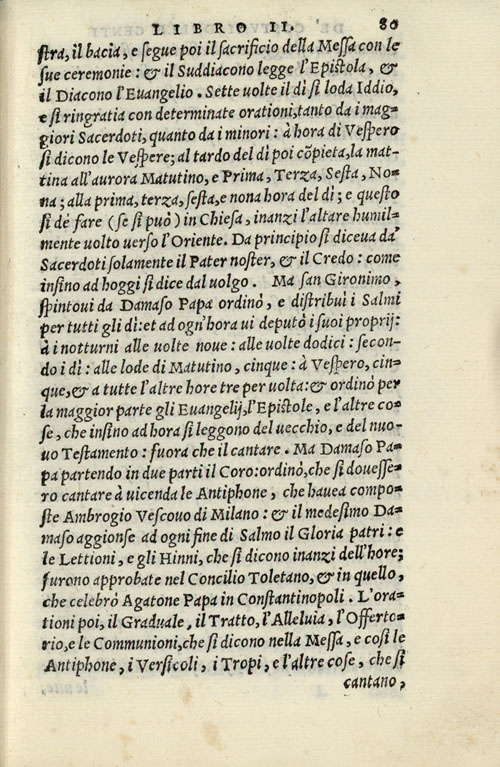 LIBRO II. 80
ſtra, il bacia, e ſegue poi il ſacrificio della Meſſa con le
ſue ceremonie: & il Suddiacono legge l'Epiſtola, &
il Diacono l'Euangelio. Sette uolte il dì ſi loda Iddio,
e ſi ringratia con determinate orationi,tanto da i mag-
giori Sacerdoti, quanto da i minori: à hora di Veſpero
ſi dicono le Veſpere; al tardo del dì poi cõpieta,la mat-
tina all'aurora Matutino, e Prima, Terza, Seſta, No-
na; alla prima, terza, ſeſta,e nona hora del dì; e queſto
ſi dè fare (ſe ſi può) in Chieſa, inanzi l'altare humil-
mente uolto uerſo l'Oriente. Da principio ſi diceua da'
Sacerdoti ſolamente il Pater noſter, & il Credo: come
inſino ad hoggi ſi dice dal uolgo. Ma san Gironimo,
ſpintoui da Damaſo Papa ordinò, e diſtribuì i Salmi
per tutti gli dì: et ad ogn'hora ui deputò i ſuoi proprij:
à i notturni alle uolte noue: alle uolte dodici: ſecon-
do i dì: alle lode di Matutino, cinque: à Veſpero, cin-
que,& a tutte l'altre hore tre per uolta:& ordinò per
la maggior parte gli Euangelij,l'Epiſtole, e l'altre co-
ſe, che inſino ad hora ſi leggono del uecchio, e del nuo-
uo Teſtamento: fuora che il cantare. Ma Damaſo Pa-
pa partendo in due parti il Coro:ordinò,che ſi doueſſe-
ro cantare à uicenda le Antiphone, che hauea compo-
ſte Ambrogio Veſcouo di Milano: & il medeſimo Da-
maſo aggionſe ad ogni fine di Salmo il Gloria patri: e
le Lettioni, e gli Hinni, che ſi dicono inanzi dell'hore;
furono approbate nel Concilio Toletano, & in quello,
che celebrò Agatone Papa in Conſtantinopoli. L'ora-
tioni poi, il Graduale, il Tratto, l'Alleluia, l'Offerto-
rio,e le Communioni,che ſi dicono nella Meſſa, e coſi le
Antiphone, i Verſicoli, i Tropi, e l'altre coſe, che ſi
cantano,